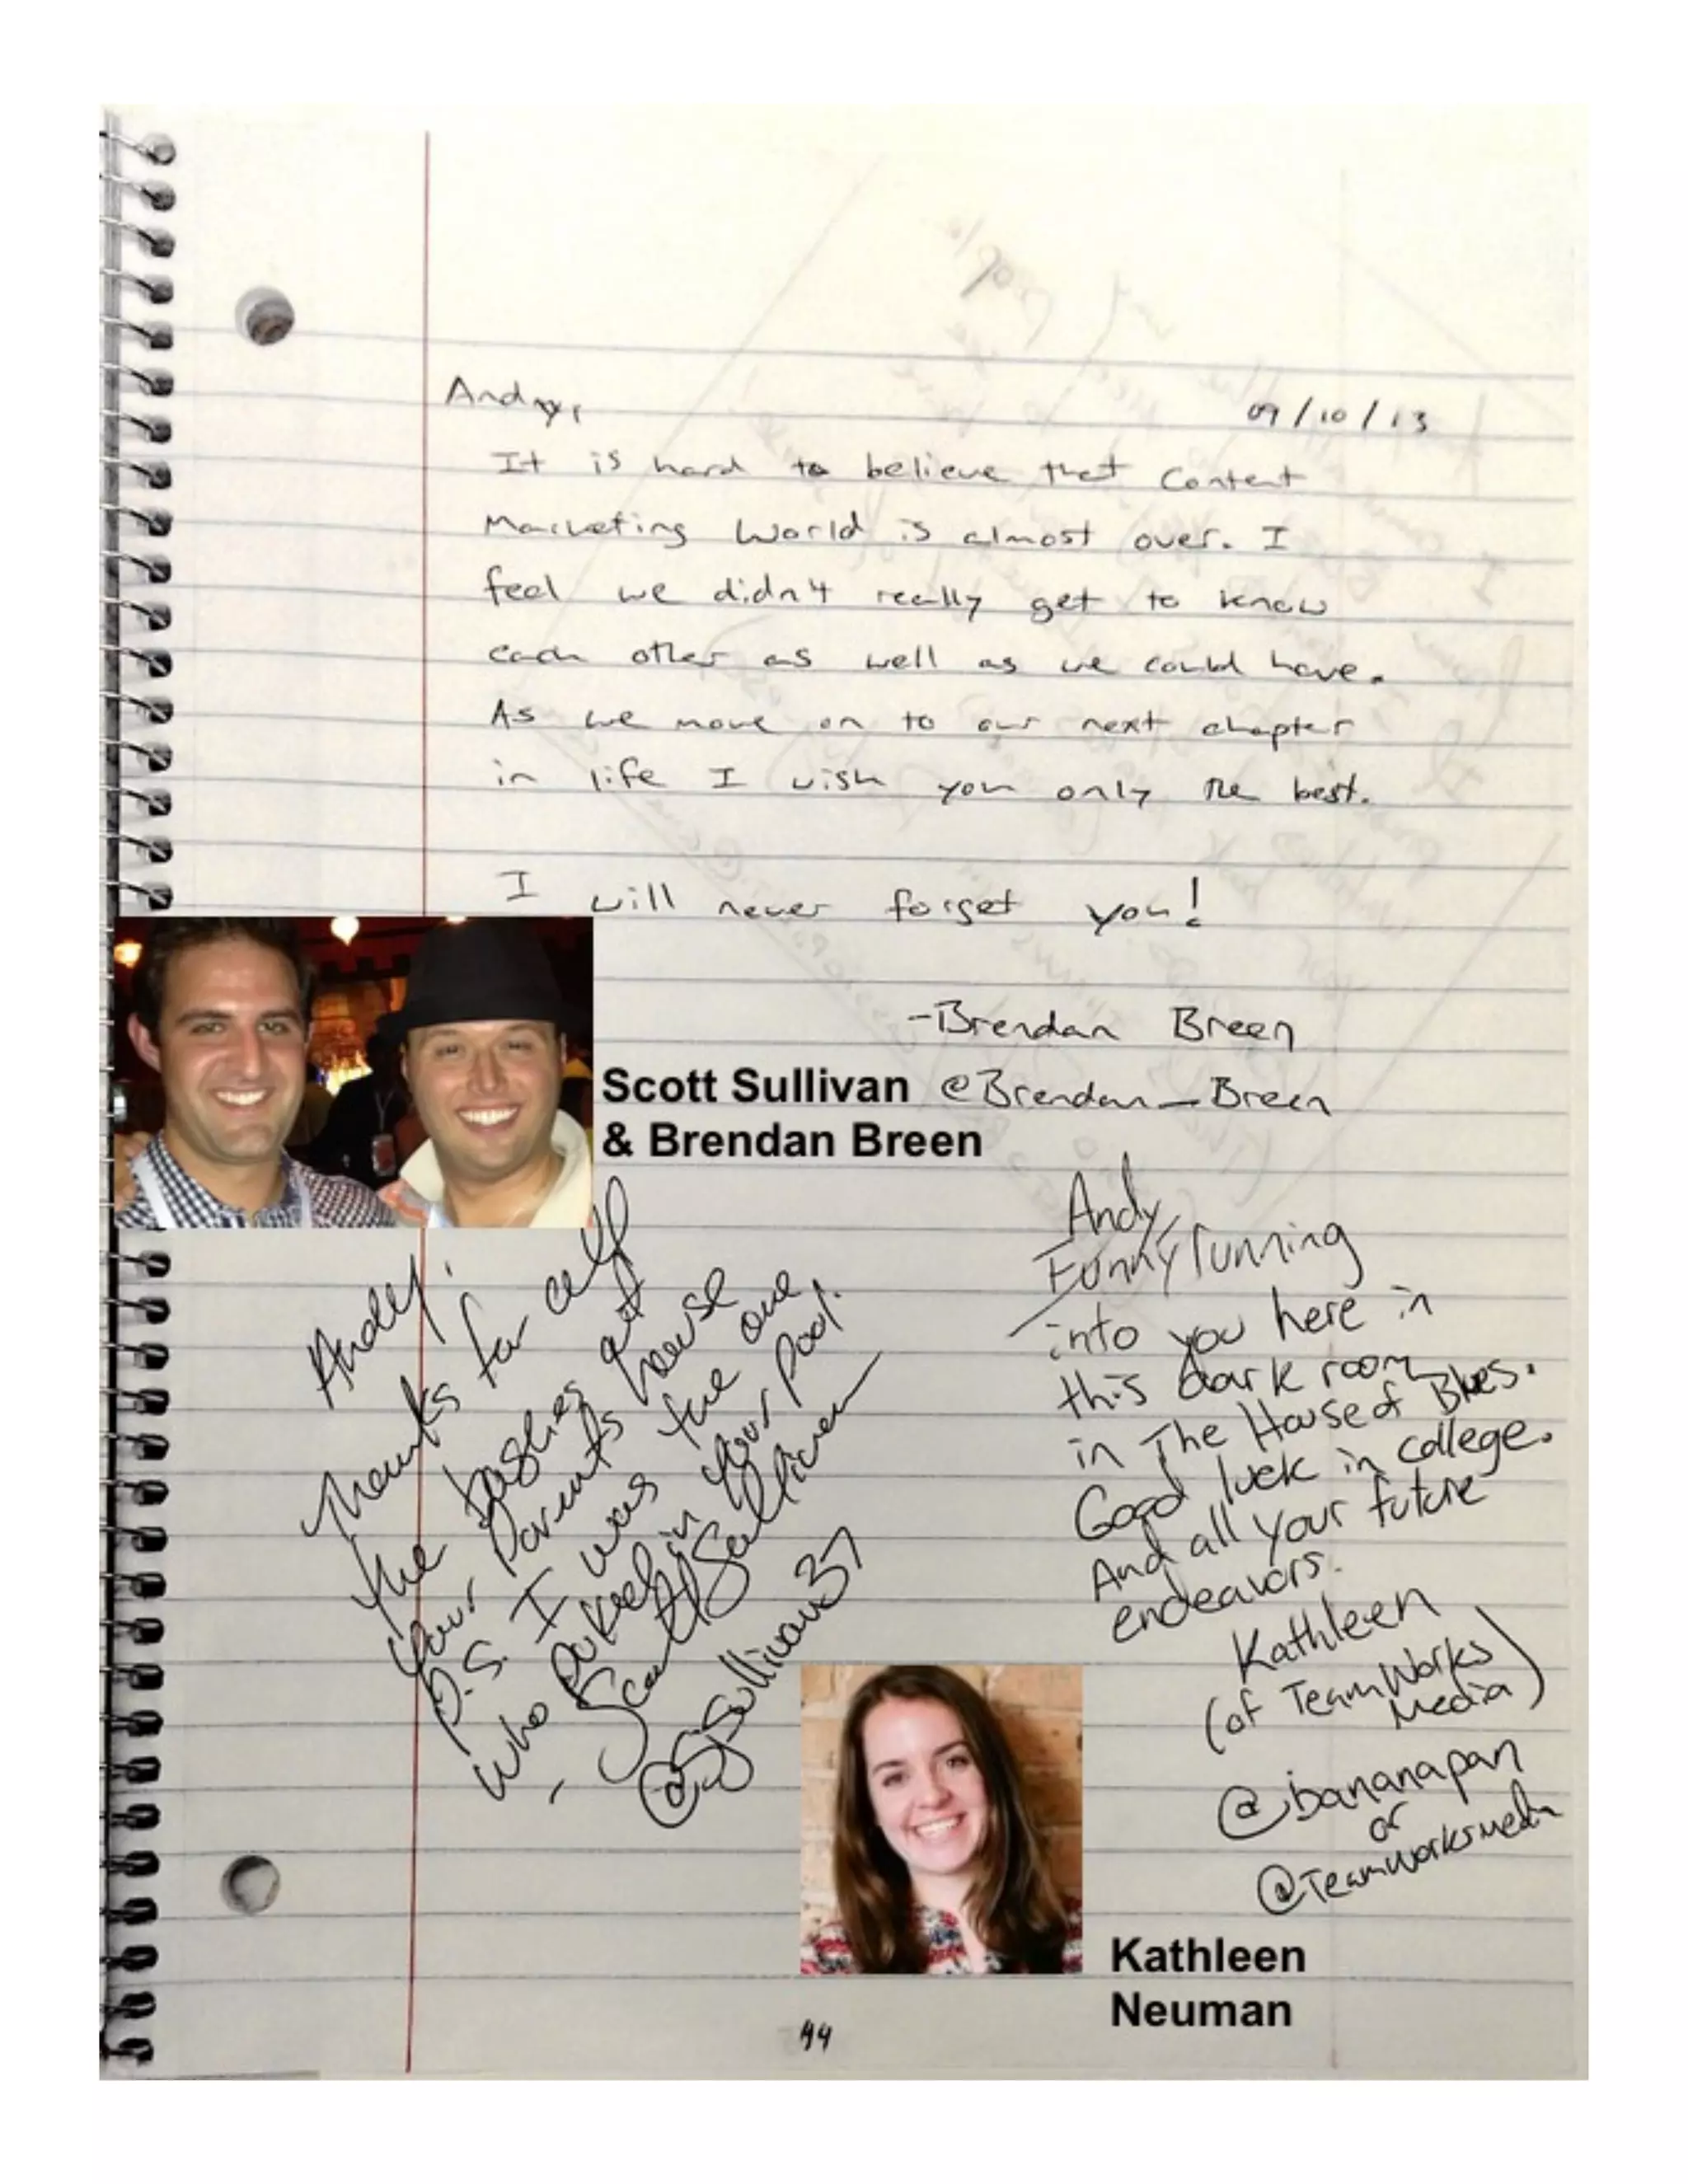 Andy,
09/10/13
It is hard to believe that Content
Marketing World is almost over. I
feel we didn't really get to know
each other as well as we could have.
As we move on to our next chapter
in life I wish you only the best.
I will never forget you!
-Brendan Breen
@Brendan_Breen
Scott Sullivan
& Brendan Breen
Andy,
Thanks for all
the bashes at
your parents house
P.S. I was the one
who puked in your pool.
- Scott Sullivan
@sjsullivan37
Andy
Funny running
into you here in
this dark room
in The House of Blues.
Good luck in college.
And all your future
endeavors.
Kathleen
(of TeamWorks
Media)
@bananapan
or
@TeamWorksMedia
Kathleen
Neuman
44